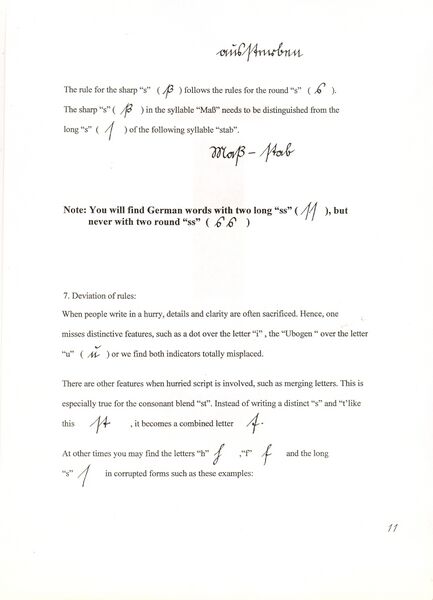 aussterben
The rule for the sharp “s” ( ß ) follows the rules for the round “s” ( s ).
The sharp “s” ( ß ) in the syllable “Maß” needs to be distinguished from the
long “s” ( ſ ) of the following syllable “stab”.
Maß – ſtab
Note: You will find German words with two long “ss” ( ſſ ), but
never with two round “ss” ( s s )
7. Deviation of rules:
When people write in a hurry, details and clarity are often sacrificed. Hence, one
misses distinctive features, such as a dot over the letter “i” , the “Ubogen “ over the letter
“u” ( ŭ ) or we find both indicators totally misplaced.
There are other features when hurried script is involved, such as merging letters. This is
especially true for the consonant blend “st”. Instead of writing a distinct “s” and “t’like
this ſt , it becomes a combined letter
At other times you may find the letters “h” h ,“f” f and the long
“s” ſ in corrupted forms such as these examples:
11